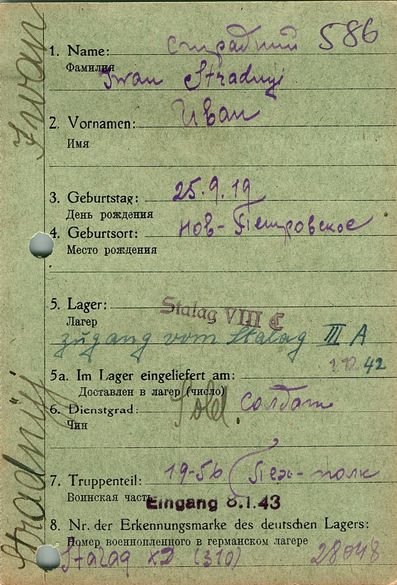 Iwan Stradnyj
1. Name: страдний 586
Фамилия Iwan Stradnyj
2. Vornamen: Иван
Имя
3. Geburtstag: 25.9.19
День рождения
4. Geburtsort: Нов-Петровское
Место рождения
5. Lager: Stalag VIII C
Лагерь
zugang vom Stalag III A
1.12.42
5a. Im Lager eingeliefert am:
Доставлен в лагерь (число)
6. Dienstgrad: Sold. солдат
Чин
7. Truppenteil: 19-56 (Пех-полк
Воинская часть Eingang 8.1.43
8. Nr. der Erkennungsmarke des deutschen Lagers:
Номер военнопленного в германском лагере
Stalag XD (310) 28048